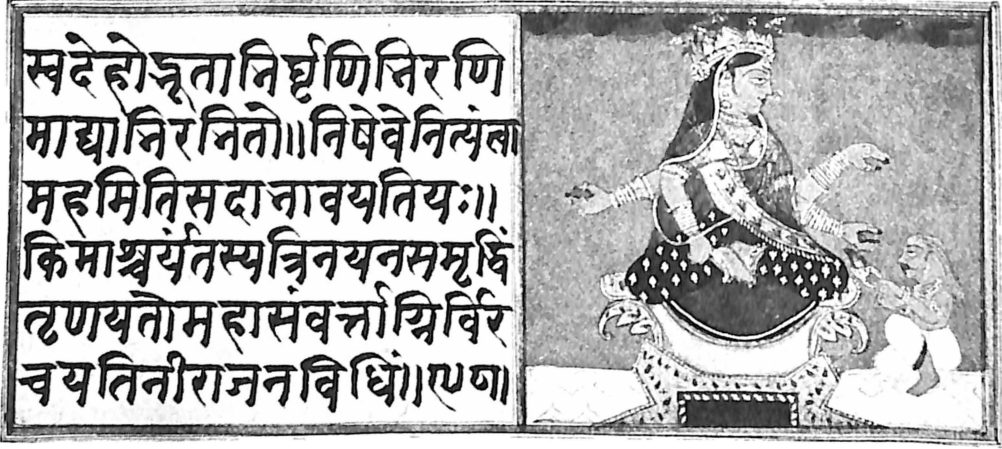 स्वदेहोद्भूताभिर्घृणिभिरणि
माद्याभिरभितो॥निषेवेनित्यंत्वा
महमितिसदाभावयतियः॥
किमाश्चर्यंतस्यत्रिनयनसमृद्धिं
तृणयतोमहासंवर्त्ताग्निर्विर
चयतिनीराजनविधिं॥